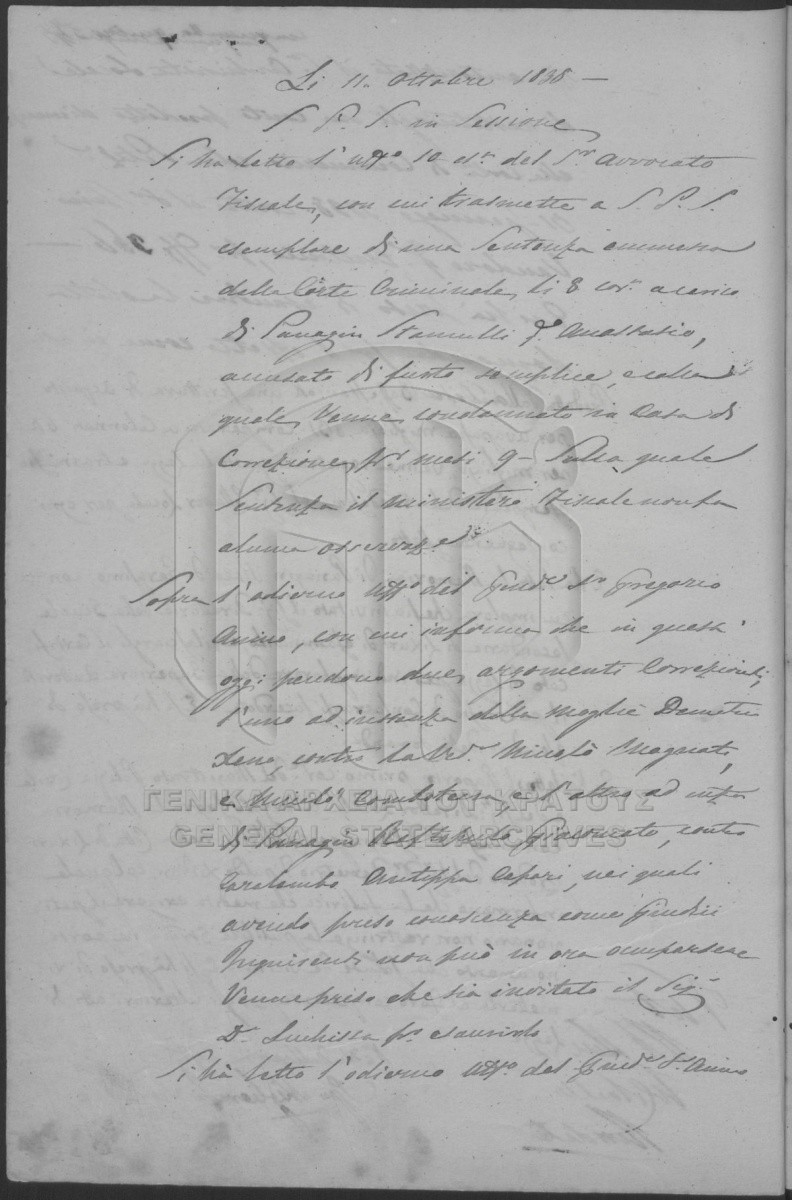 Li 11. Ottobre 1838 —
S. P. S. in Sessione
Si ha letto l'uffo 10 cr. del Sr. Avvocato
Fiscale, con cui trasmette a S. P. S.
esemplare di una Sentenza emmessa
dalla Corte Criminale, li 8 corr. a carico
di Panagin Stamulli qm Anastasio,
accusato di furto semplice, colla
quale, venne condannato in Casa di
Correzione pr mesi 9 — Sulla quale
Sentenza il Ministero Fiscale non fa
alcuna osservaze.
Sopra l'odierno uffo del Giude. Sr. Gregorio
Anino, con cui informa che in quest'
oggi pendono due argomenti Correzionali,
l'uno ad instanza della moglie Demetrio
Xeno, contro la Ved. Nicolò
e Nicolò e l'altro ad inza
di Panagin contro
Caralambo Antippa nei quali
avendo preso conoscenza come Giudici
Inquirenti non può in ora comparsene
Venne preso che sia invitato il Sigr.
Dr. Luchissa pr esaurirlo
Si ha letto l'odierno uffo del Giude. Sr. Anino
ΓΕΝΙΚΑ ΑΡΧΕΙΑ ΤΟΥ ΚΡΑΤΟΥΣ
GENERAL STATE ARCHIVES